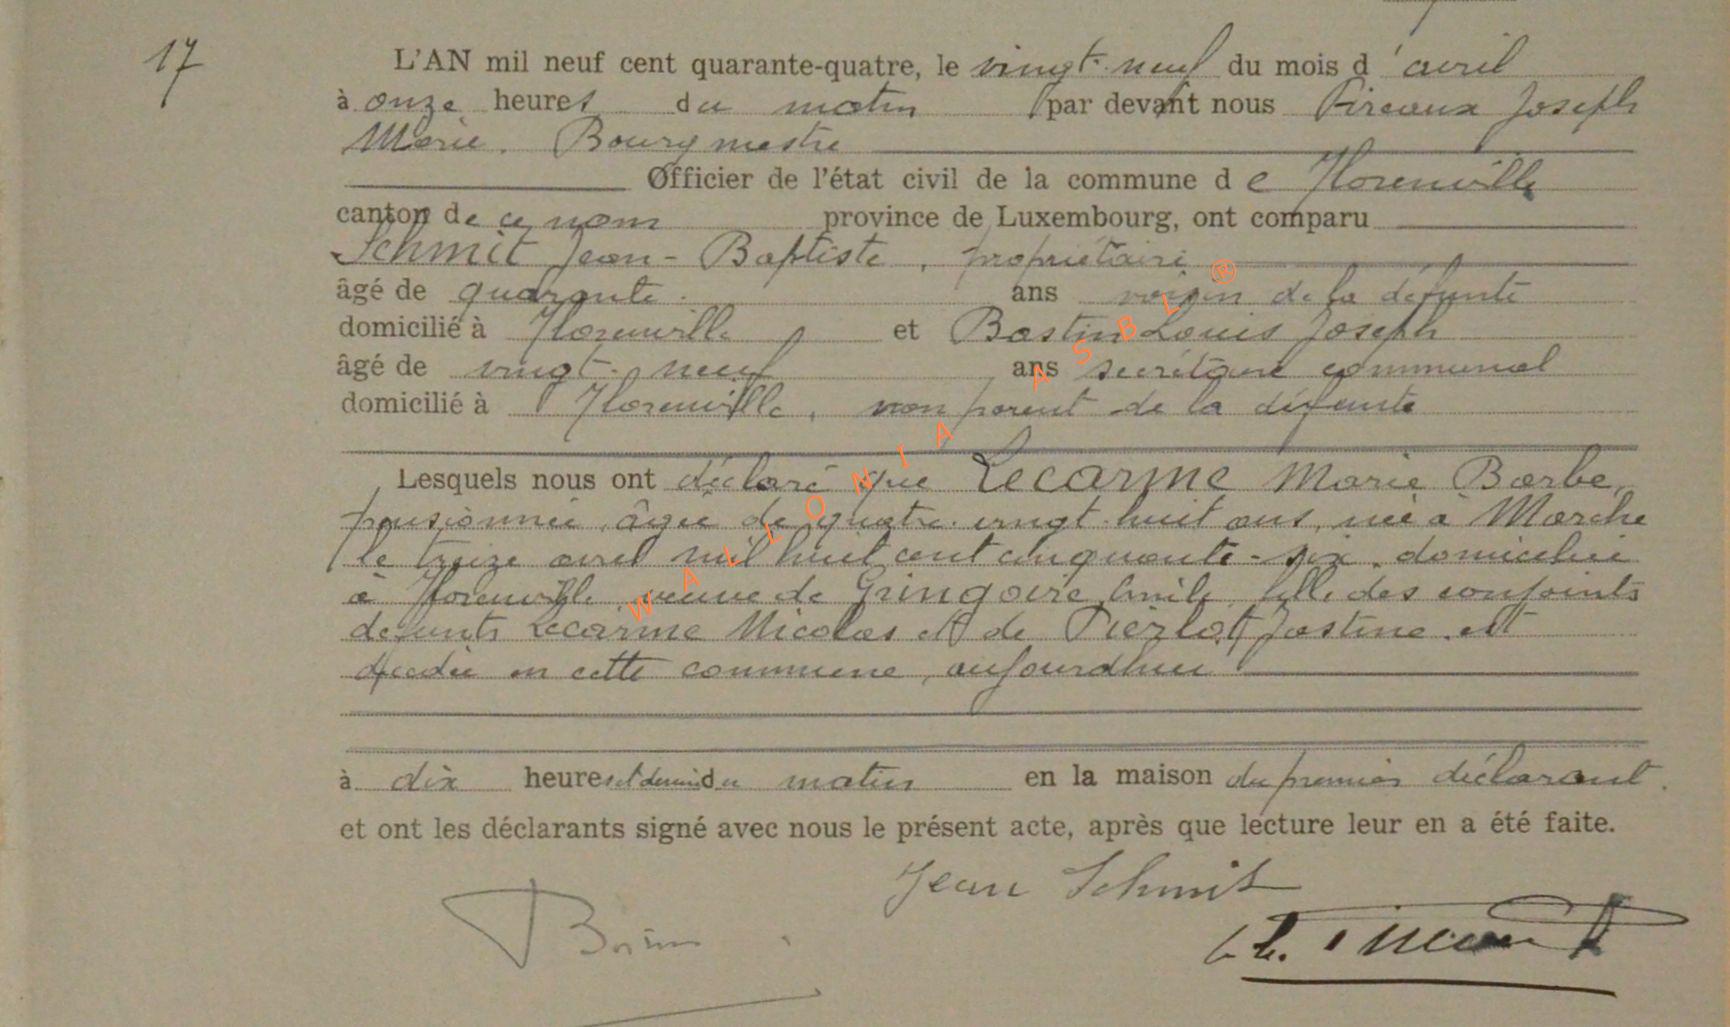 17
L'AN mil neuf cent quarante-quatre, le vingt-neuf du mois d'avril
à onze heures du matin par devant nous Pireaux Joseph
Marie. Bourgmestre
Officier de l'état civil de la commune de Florenville
canton de ce nom province de Luxembourg, ont comparu
Schmit Jean-Baptiste, propriétaire
âgé de quarante ans voisin de la défunte
domicilié à Florenville et Bastin Louis Joseph
âgé de vingt-neuf ans secrétaire communal
domicilié à Florenville, non parent de la défunte
Lesquels nous ont déclaré que Lecarme Marie Barbe,
pensionnée, âgée de quatre-vingt-huit ans, née à Marche
le treize avril mil huit cent cinquante-six, domiciliée
à Florenville, veuve de Gringoire Emile, fille des conjoints
défunts Lecarme Nicolas et de Pierlot Justine, est
décédée en cette commune, aujourd'hui
à dix heures et demie du matin en la maison du premier déclarant.
et ont les déclarants signé avec nous le présent acte, après que lecture leur en a été faite.
Jean Schmit
WALLONIA ASBL ®